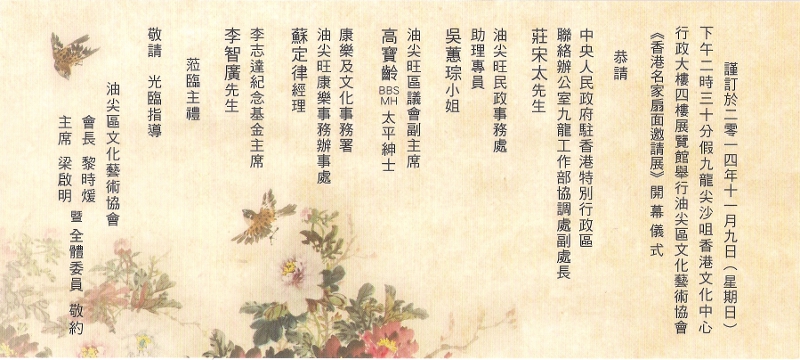 謹訂於二零一四年十一月九日（星期日）
下午二時三十分假九龍尖沙咀香港文化中心
行政大樓四樓展覽館舉行油尖區文化藝術協會
《香港名家扇面邀請展》開幕儀式
恭請
中央人民政府駐香港特別行政區
聯絡辦公室九龍工作部協調處副處長
莊宋太先生
油尖旺民政事務處
助理專員
吳蕙琮小姐
油尖旺區議會副主席
高寶齡 BBS MH 太平紳士
康樂及文化事務署
油尖旺康樂事務辦事處
蘇定律經理
李志達紀念基金主席
李智廣先生
蒞臨主禮
敬請 光臨指導
油尖區文化藝術協會
會長 黎時煖
主席 梁啟明
暨 全體委員 敬約